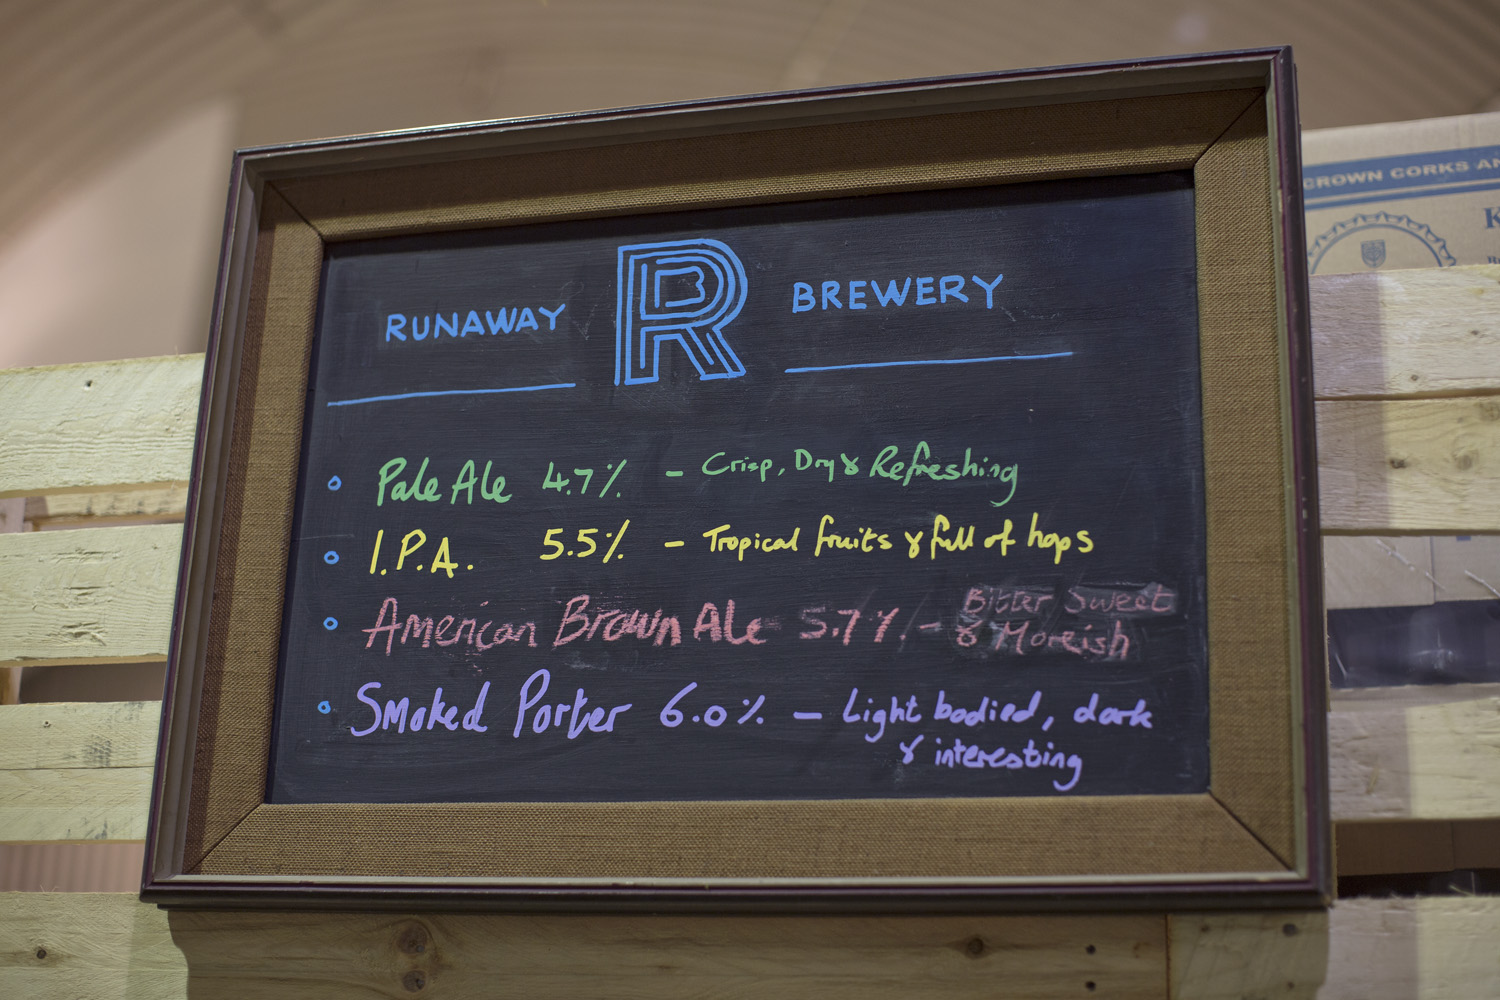 RUNAWAY R BREWERY
Pale Ale 4.7% - Crisp, Dry & Refreshing
I.P.A. 5.5% - Tropical fruits & full of hops
American Brown Ale 5.7% - Bitter Sweet
& Moreish
Smoked Porter 6.0% - Light bodied, dark
& interesting
CROWN CORKS